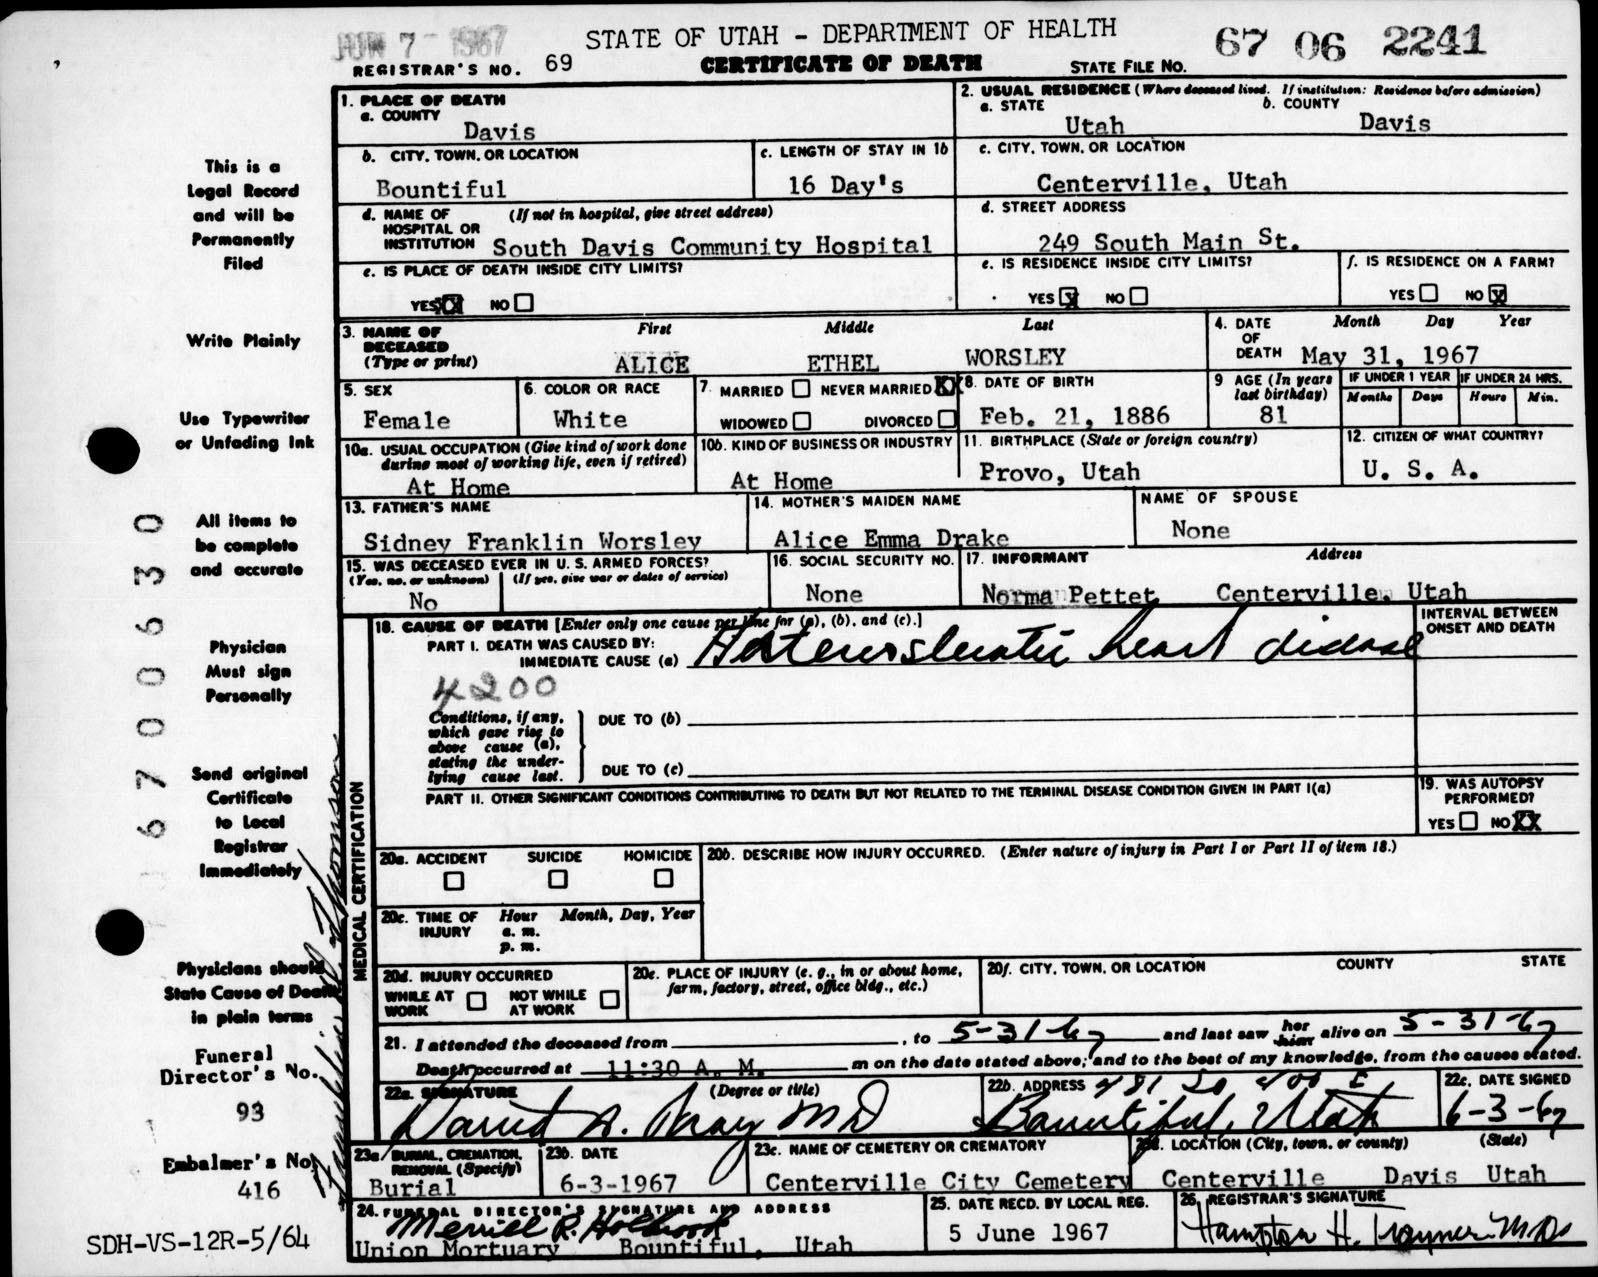 JUN 7 - 1967
STATE OF UTAH - DEPARTMENT OF HEALTH
67 06 2241
REGISTRAR'S NO. 69
CERTIFICATE OF DEATH
STATE FILE NO.
1. PLACE OF DEATH
a. COUNTY
Davis
2. USUAL RESIDENCE (Where deceased lived. If institution: Residence before admission)
a. STATE
Utah
b. COUNTY
Davis
b. CITY, TOWN, OR LOCATION
Bountiful
c. LENGTH OF STAY IN 1b
16 Day's
c. CITY, TOWN, OR LOCATION
Centerville, Utah
d. NAME OF HOSPITAL OR INSTITUTION (If not in hospital, give street address)
South Davis Community Hospital
d. STREET ADDRESS
249 South Main St.
e. IS PLACE OF DEATH INSIDE CITY LIMITS?
YES XX NO
e. IS RESIDENCE INSIDE CITY LIMITS?
YES X NO
f. IS RESIDENCE ON A FARM?
YES NO X
3. NAME OF DECEASED
(Type or print)
First Middle Last
ALICE ETHEL WORSLEY
4. DATE OF DEATH
Month Day Year
May 31, 1967
5. SEX
Female
6. COLOR OR RACE
White
7. MARRIED NEVER MARRIED XX
WIDOWED DIVORCED
8. DATE OF BIRTH
Feb. 21, 1886
9 AGE (In years last birthday)
81
IF UNDER 1 YEAR
Months Days
IF UNDER 24 HRS.
Hours Min.
10a. USUAL OCCUPATION (Give kind of work done during most of working life, even if retired)
At Home
10b. KIND OF BUSINESS OR INDUSTRY
At Home
11. BIRTHPLACE (State or foreign country)
Provo, Utah
12. CITIZEN OF WHAT COUNTRY?
U. S. A.
13. FATHER'S NAME
Sidney Franklin Worsley
14. MOTHER'S MAIDEN NAME
Alice Emma Drake
NAME OF SPOUSE
None
15. WAS DECEASED EVER IN U. S. ARMED FORCES?
(Yes, no, or unknown) (If yes, give war or dates of service)
No
16. SOCIAL SECURITY NO.
None
17. INFORMANT Address
Norma Pettet Centerville, Utah
MEDICAL CERTIFICATION
18. CAUSE OF DEATH [Enter only one cause per line for (a), (b), and (c).]
PART I. DEATH WAS CAUSED BY:
IMMEDIATE CAUSE (a) heart disease
INTERVAL BETWEEN ONSET AND DEATH
4200
Conditions, if any, which gave rise to above cause (a), stating the underlying cause last.
DUE TO (b)
DUE TO (c)
PART II. OTHER SIGNIFICANT CONDITIONS CONTRIBUTING TO DEATH BUT NOT RELATED TO THE TERMINAL DISEASE CONDITION GIVEN IN PART I(a)
19. WAS AUTOPSY PERFORMED?
YES NO XX
20a. ACCIDENT SUICIDE HOMICIDE
20b. DESCRIBE HOW INJURY OCCURRED. (Enter nature of injury in Part I or Part II of item 18.)
20c. TIME OF INJURY Hour Month, Day, Year
a. m.
p. m.
20d. INJURY OCCURRED
WHILE AT WORK NOT WHILE AT WORK
20e. PLACE OF INJURY (e. g., in or about home, farm, factory, street, office bldg., etc.)
20f. CITY, TOWN, OR LOCATION COUNTY STATE
21. I attended the deceased from , to 5-31-67 and last saw her him alive on 5-31-67
Death occurred at 11:30 A. M. m on the date stated above; and to the best of my knowledge, from the causes stated.
22a. SIGNATURE (Degree or title)
MD
22b. ADDRESS 481 So 400 E
Bountiful, Utah
22c. DATE SIGNED
6-3-67
23a. BURIAL, CREMATION, REMOVAL (Specify)
Burial
23b. DATE
6-3-1967
23c. NAME OF CEMETERY OR CREMATORY
Centerville City Cemetery
23d. LOCATION (City, town, or county) (State)
Centerville Davis Utah
24. FUNERAL DIRECTOR'S SIGNATURE AND ADDRESS
Merrill R. Holbrook
Union Mortuary Bountiful, Utah
25. DATE RECD. BY LOCAL REG.
5 June 1967
26. REGISTRAR'S SIGNATURE
Hampton H.
This is a
Legal Record
and will be
Permanently
Filed
Write Plainly
Use Typewriter
or Unfading Ink
All items to
be complete
and accurate
Physician
Must sign
Personally
Send original
Certificate
to Local
Registrar
Immediately
Physicians should
State Cause of Death
in plain terms
Funeral
Director's No.
93
Embalmer's No.
416
SDH-VS-12R-5/64
6700630